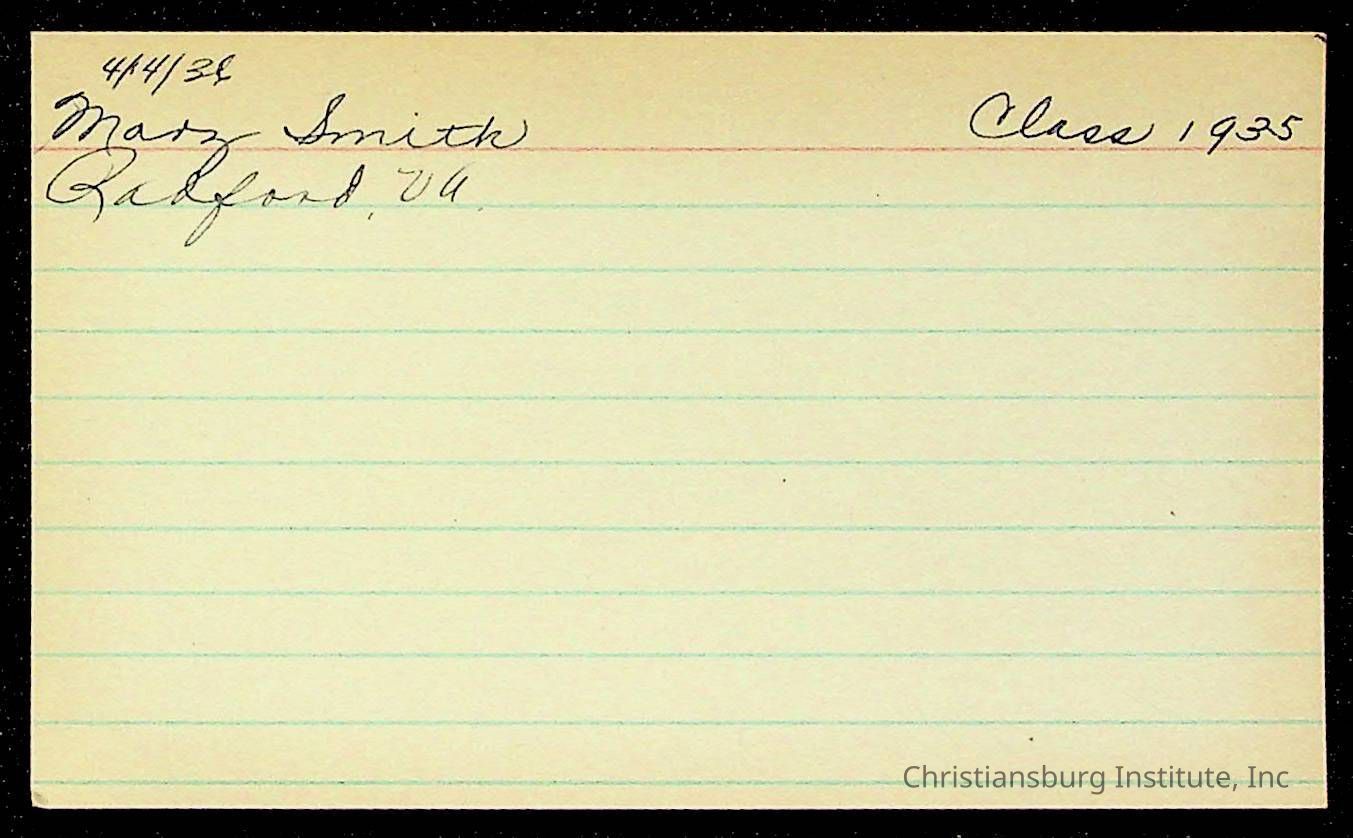 4/4/36
Mary Smith Class 1935
Radford, Va.
Christiansburg Institute, Inc